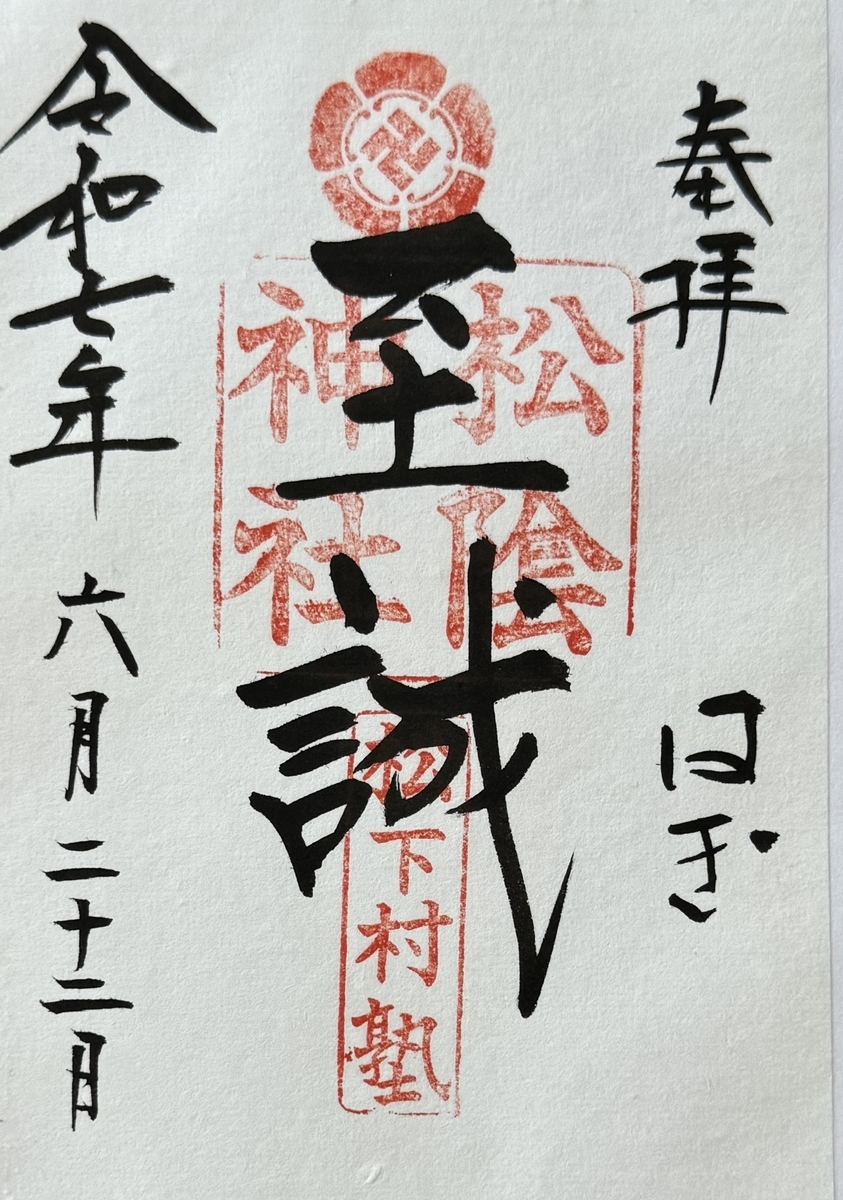 奉拝
はぎ
至誠
松陰
神社
松下村塾
令和七年
六月二十二日